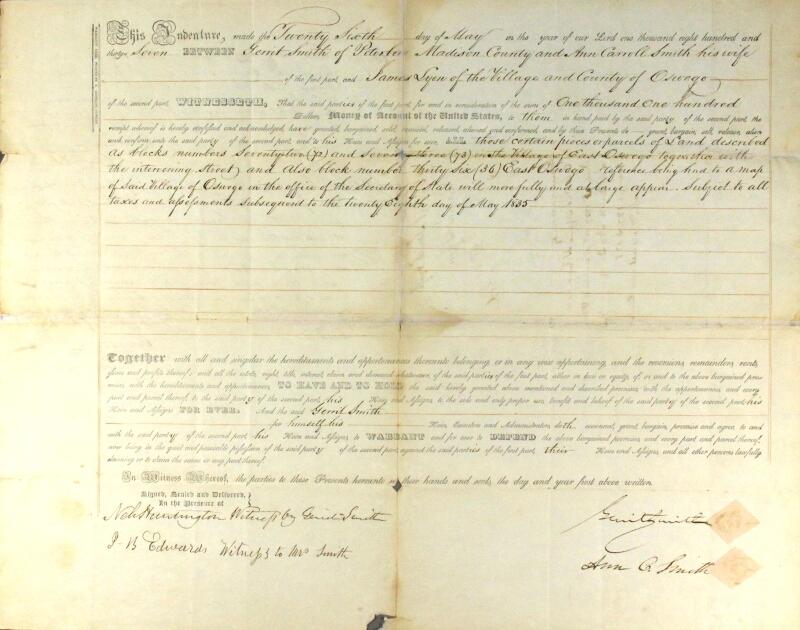 This Indenture, made the Twenty Sixth day of May in the year of our Lord one thousand eight hundred and
thirty Seven BETWEEN Gerrit Smith of Peterboro Madison County and Ann Carroll Smith his wife
of the first part, and James Lyon of the Village and County of Oswego
of the second part, WITNESSETH, That the said parties of the first part, for and in consideration of the sum of One thousand One hundred
Dollars, Money of Account of the United States, to them in hand paid by the said party of the second part, the
receipt whereof is hereby confessed and acknowledged, have granted, bargained, sold, remised, released, aliened and confirmed, and by these Presents do grant, bargain, sell, release, alien
and confirm unto the said party of the second part, and to his Heirs and Assigns for ever, ALL those certain pieces or parcels of Land described
as blocks numbers Seventy two (72) and Seventy three (73) in the Village of East Oswego together with
the intervening Street) and Also block number thirty Six (36) East Oswego reference being had to a map
of Said Village of Oswego in the office of the Secretary of State will more fully and at large appear. Subject to all
taxes and assessments Subsequent to the twenty Eighth day of May 1835
Together with all and singular the hereditaments and appurtenances thereunto belonging, or in any wise appertaining, and the reversions, remainders, rents,
issues and profits thereof; and all the estate, right, title, interest, claim and demand whatsoever, of the said parties of the first part, either in law or equity, of, in and to the above bargained pre-
mises, with the hereditaments and appurtenances, TO HAVE AND TO HOLD the said hereby granted above mentioned and described premises, with the appurtenances, and every
part and parcel thereof, to the said party of the second part, his Heirs and Assigns, to the sole and only proper use, benefit and behoof of the said party of the second part, his
Heirs and Assigns FOR EVER. And the said Gerrit Smith
for himself his Heirs, Executors and Administrators, doth covenant, grant, bargain, promise and agree, to and
with the said party of the second part, his Heirs and Assigns, to WARRANT and for ever to DEFEND the above bargained premises, and every part and parcel thereof,
now being in the quiet and peaceable possession of the said party of the second part, against the said parties of the first part, their Heirs and Assigns, and all other persons lawfully
claiming or to claim the same or any part thereof.
In Witness Whereof, the parties to these Presents hereunto set their hands and seals, the day and year first above written.
Signed, Sealed and Delivered,
In the Presence of
Neh Huntington Witness by Gerrit Smith
J. B Edwards Witness to Mrs Smith
Gerrit Smith
Ann C. Smith